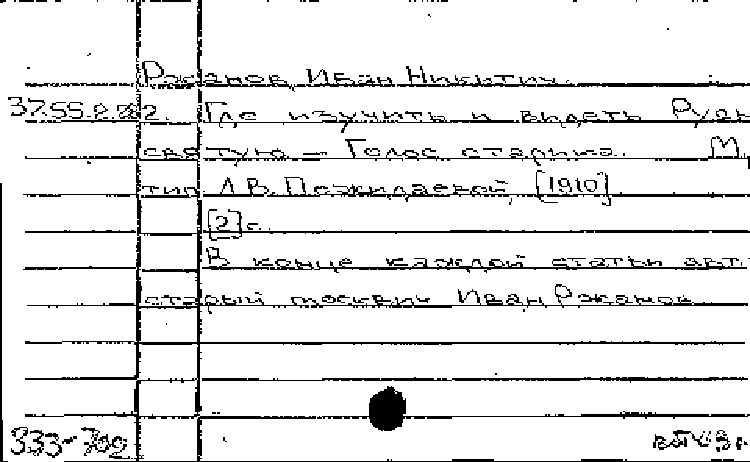 Ржанов, Иван Никитич.
37.55.2.82. Где изучить и видеть Русь
святую. – Голос старика. М.,
тип. Л.В. Пожидаевой, [1910]
[2] с.
В конце каждой статьи авт.:
старый москвич Иван Ржанов
333-702